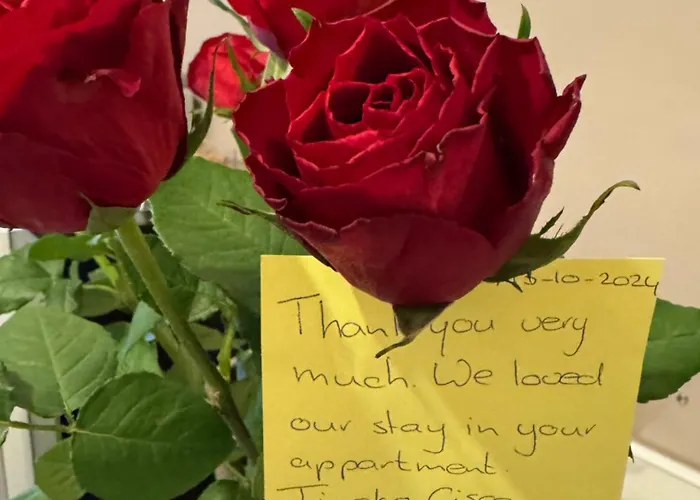 -10-2024
Thank you very
much. We loved
our stay in your
appartment.